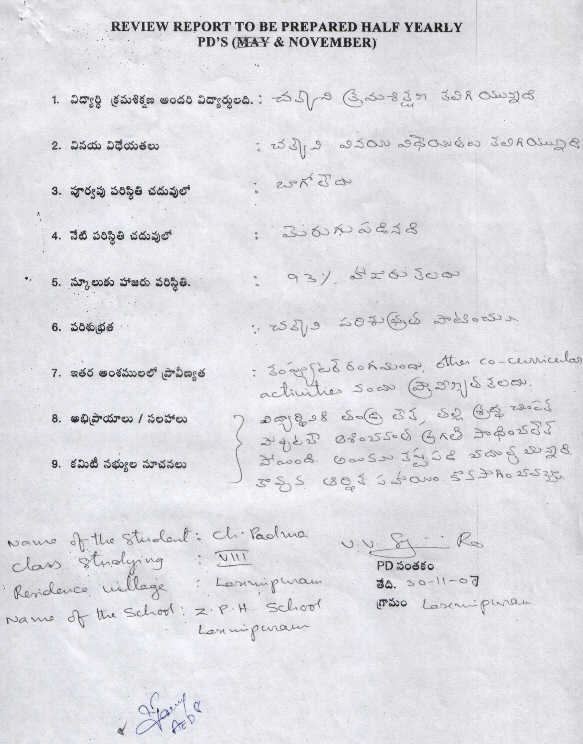 REVIEW REPORT TO BE PREPARED HALF YEARLY
PD'S (MAY & NOVEMBER)
1. విద్యార్థి క్రమశిక్షణ అందరి విద్యార్థులది. : చక్కని క్రమశిక్షణ కలిగియున్నది
2. వినయ విధేయతలు : చక్కని వినయ విధేయతలు కలిగియున్నది
3. పూర్వపు పరిస్థితి చదువులో : బాగోలేదు
4. నేటి పరిస్థితి చదువులో : మెరుగుపడినది
5. స్కూలుకు హాజరు పరిస్థితి. : 93% హాజరు కలదు
6. పరిశుభ్రత : చక్కని పరిశుభ్రత
7. ఇతర అంశములలో ప్రావీణ్యత : కంప్యూటర్ రంగమందు, other co-curricular
activities నందు ప్రావీణ్యత కలదు.
8. అభిప్రాయాలు / సలహాలు విద్యార్థినికి తండ్రి లేక, తల్లి
ప్రగతి సాధించలేక
9. కమిటీ సభ్యుల సూచనలు పోయింది.
ఆర్థిక సహాయం
Name of the Student : Ch. Padma
Class Studying : VIII
Residence village : Laxmipuram
Name of the School : Z. P. H. School
Laxmipuram
PD సంతకం
తేది. 30-11-07
గ్రామం Laxmipuram